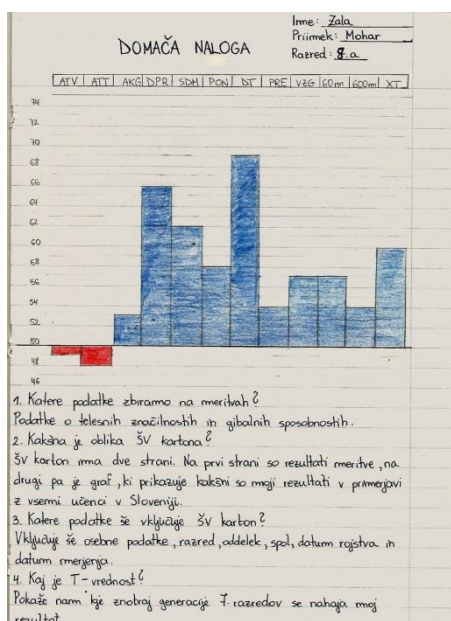 Ime: Zala
Priimek: Mohar
DOMAČA NALOGA
Razred: 8.a
ATV ATT AKG DPR SDM PON DT PRE VZG 60m 600m XT
74
72
70
68
66
64
62
60
58
56
54
52
50
48
46
1. Katere podatke zbiramo na meritvah?
Podatke o telesnih značilnostih in gibalnih sposobnostih.
2. Kakšna je oblika ŠV kartona?
ŠV karton ima dve strani. Na prvi strani so rezultati meritve, na
drugi pa je graf, ki prikazuje kakšni so moji rezultati v primerjavi
z vsemi učenci v Sloveniji.
3. Katere podatke še vključuje ŠV karton?
Vključuje še osebne podatke, razred, oddelek, spol, datum rojstva in
datum merjenja.
4. Kaj je T-vrednost?
Pokaže nam kje znotraj generacije 7. razredov se nahaja moj
rezultat